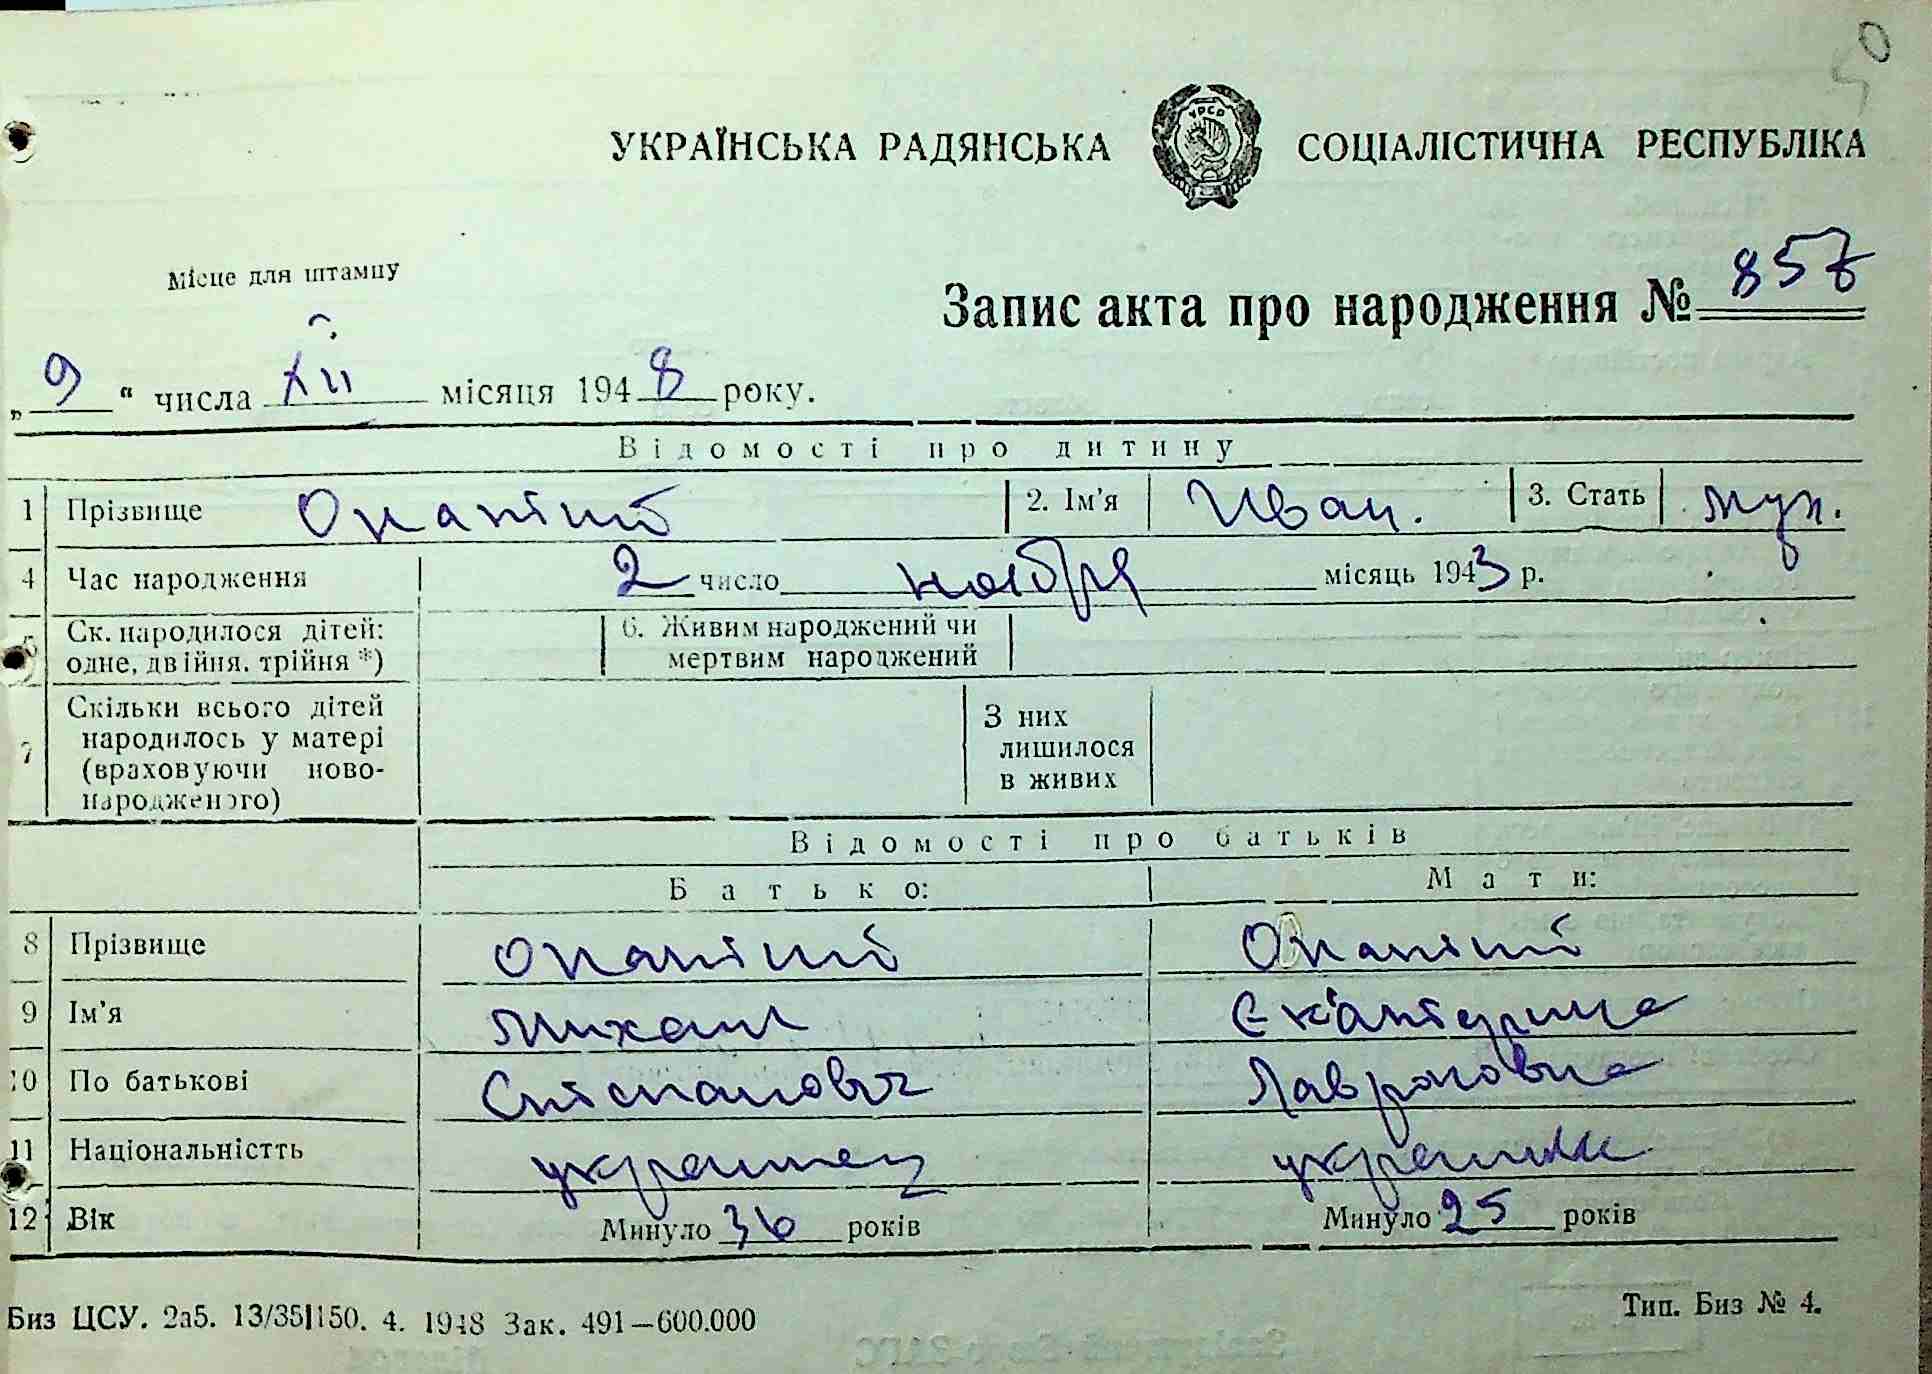 50
УКРАЇНСЬКА РАДЯНСЬКА СОЦІАЛІСТИЧНА РЕСПУБЛІКА
УРСР
Місце для штампу
Запис акта про народження № 857
„ 9 “ числа XII місяця 1948 року.
Відомості про дитину
1 Прізвище 2. Ім'я Иван. 3. Стать муж.
4 Час народження 2 число ноября місяць 1943 р.
5 Ск. народилося дітей: 6. Живим народжений чи
одне, двійня, трійня *) мертвим народжений
7 Скільки всього дітей З них
народилось у матері лишилося
(враховуючи ново- в живих
народженого)
Відомості про батьків
Батько: Мати:
8 Прізвище
9 Ім'я Михаил Екатерина
10 По батькові Степанович Лавровна
11 Національністть украинец украинка
12 Вік Минуло 36 років Минуло 25 років
Биз ЦСУ. 2а5. 13/35|150. 4. 1948 Зак. 491—600.000 Тип. Биз № 4.